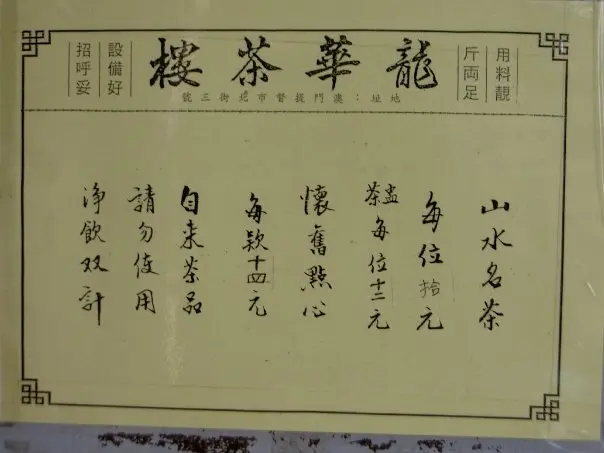 用料靚
斤両足
龍華茶樓
設備好
招呼妥
地址：澳門提督市北街三號
山水名茶
每位拾元
盅茶每位十二元
懷舊點心
每款十四元
自来茶品
請勿使用
净飲双計